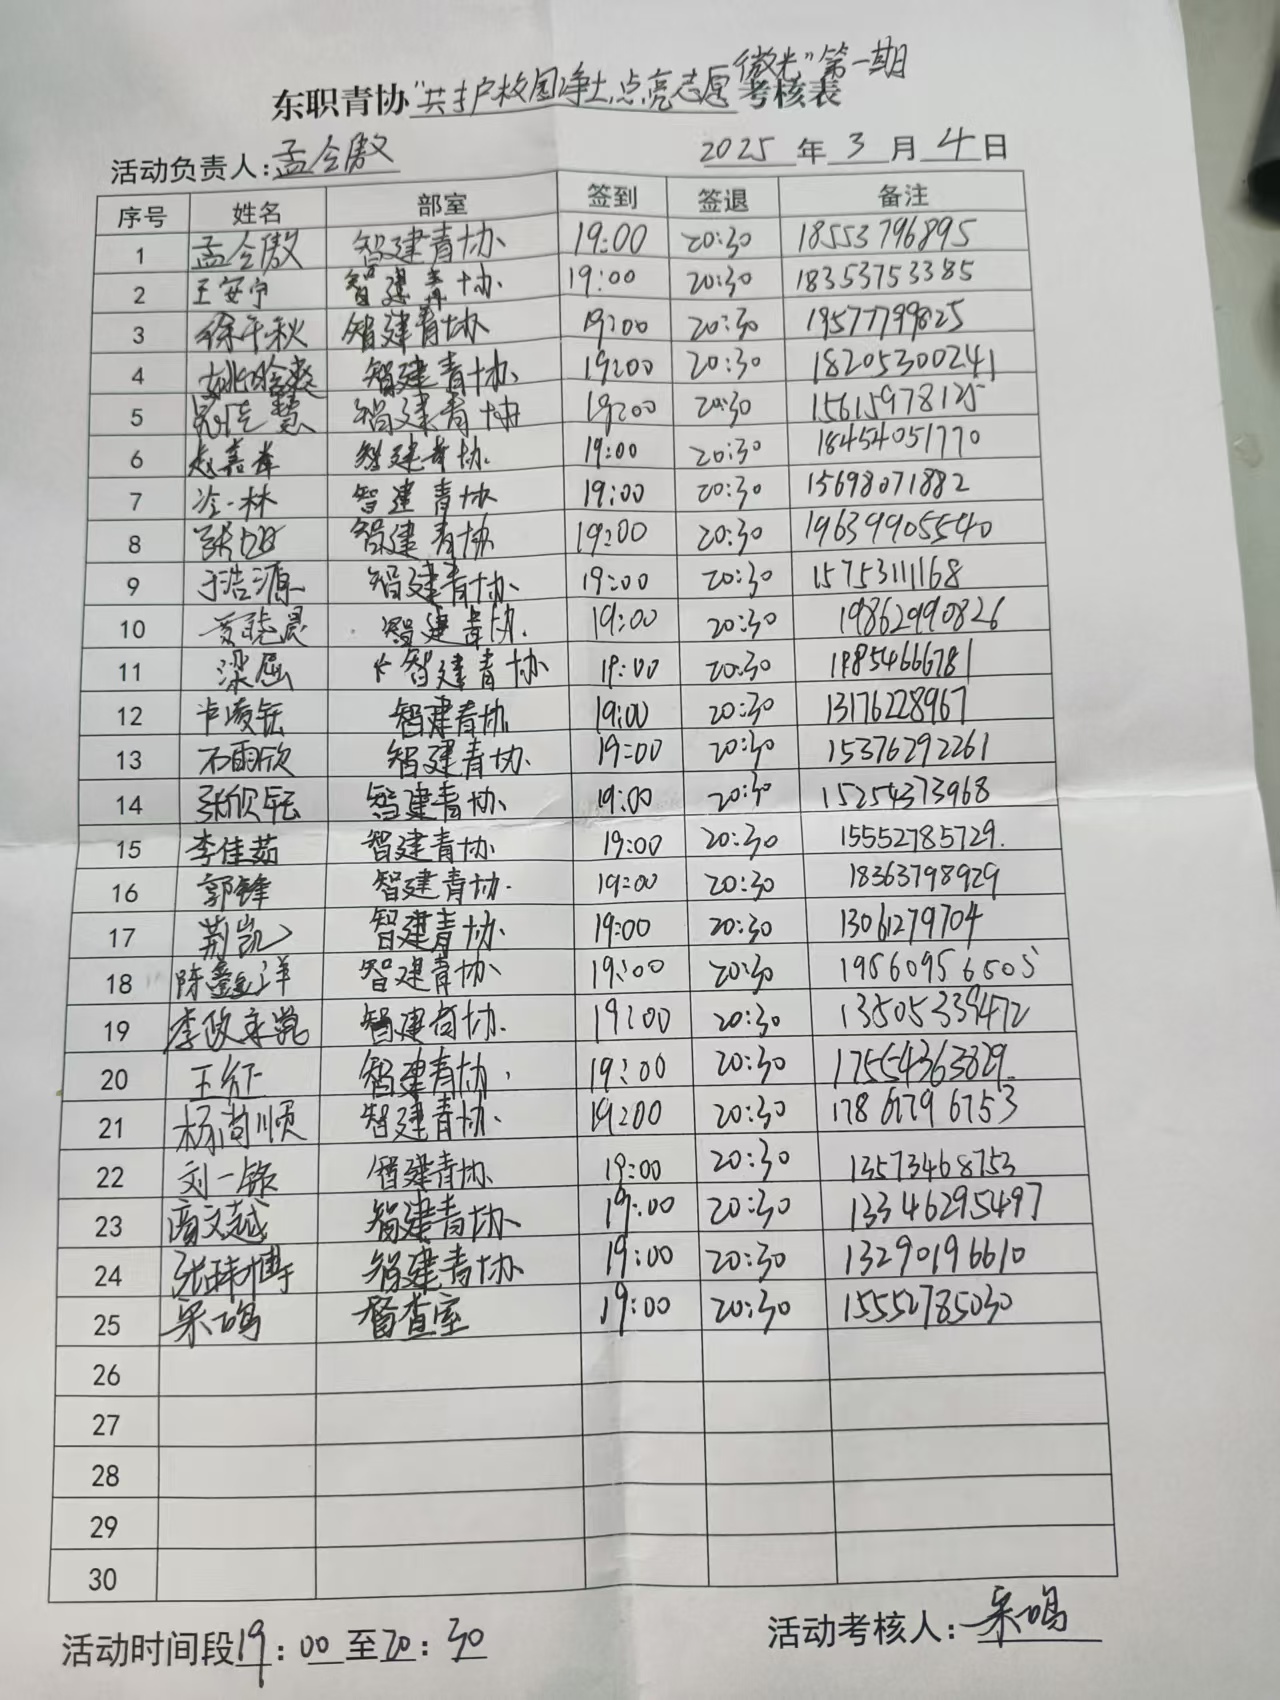 微光"第一期
东职青协"共护校园净土,点亮志愿考核表
活动负责人:孟令傲 2025年3月4日
序号 姓名 部室 签到 签退 备注
1 孟令傲 智建青协 19:00 20:30 18553796895
2 王安宁 智建青协 19:00 20:30 18353753385
3 徐千秋 智建青协 19:00 20:30 19577799825
4 智建青协 19:00 20:30 18205300241
5 智建青协 19:00 20:30 15615978125
6 赵嘉峰 智建青协 19:00 20:30 18454051770
7 冷一林 智建青协 19:00 20:30 15698071882
8 张旭 智建青协 19:00 20:30 19639905540
9 于浩源 智建青协 19:00 20:30 15753111168
10 智建青协 19:00 20:30 19862990826
11 梁屈 智建青协 19:00 20:30 19854666781
12 智建青协 19:00 20:30 13176228967
13 石雨欣 智建青协 19:00 20:30 15376292261
14 张欣钰 智建青协 19:00 20:30 15254373968
15 李佳茹 智建青协 19:00 20:30 15552785729.
16 郭锋 智建青协 19:00 20:30 18363798929
17 荆凯 智建青协 19:00 20:30 13061279704
18 陈鑫洋 智建青协 19:00 20:30 19860956505
19 智建青协 19:00 20:30 13505339472
20 王红 智建青协 19:00 20:30 17554363829
21 杨尚顺 智建青协 19:00 20:30 17861796753
22 刘一铭 智建青协 19:00 20:30 13573468753
23 智建青协 19:00 20:30 13346295497
24 张玮博 智建青协 19:00 20:30 13290196610
25 督查室 19:00 20:30 15552785030
26
27
28
29
30
活动时间段19:00至20:30 活动考核人: